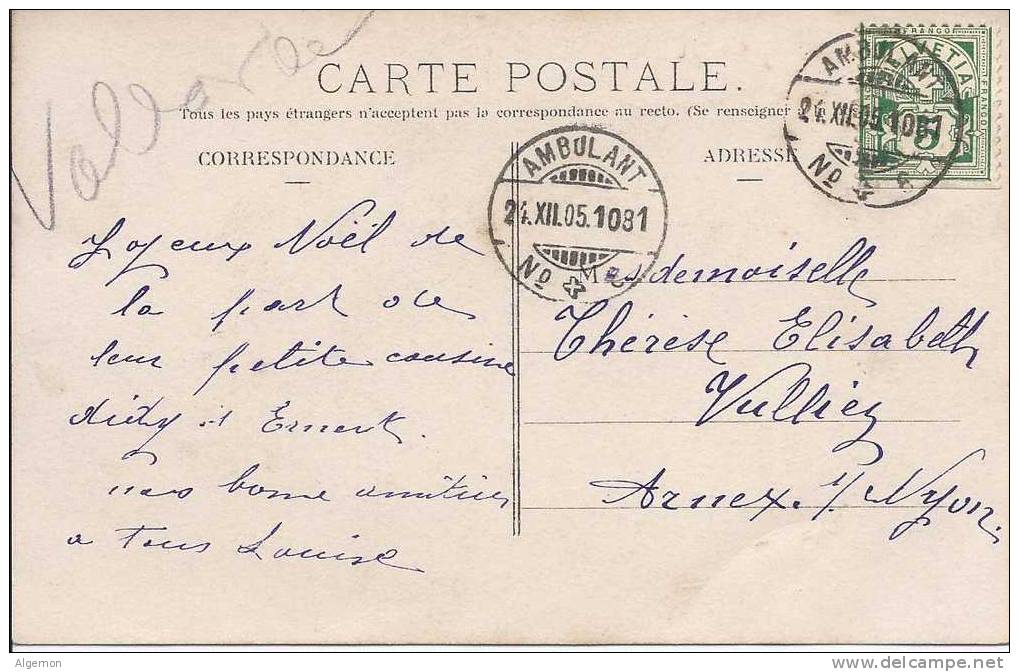 Vallorbe
CARTE POSTALE.
Tous les pays étrangers n'acceptent pas la correspondance au recto. (Se renseigner
CORRESPONDANCE
ADRESSE
FRANCO
HELVETIA
FRANCO
5
AMBULANT
24.XII.05.1081
No
AMBULANT
24.XII.05.1081
No
Joyeux Noël de
la part de
leur petite cousine
et Ernest.
nos bonne amitiés
a tous Louise
Mesdemoiselle
Thérèse Elisabeth
Vulliez
Arnex s/ Nyon.
Algemon
www.delcampe.net